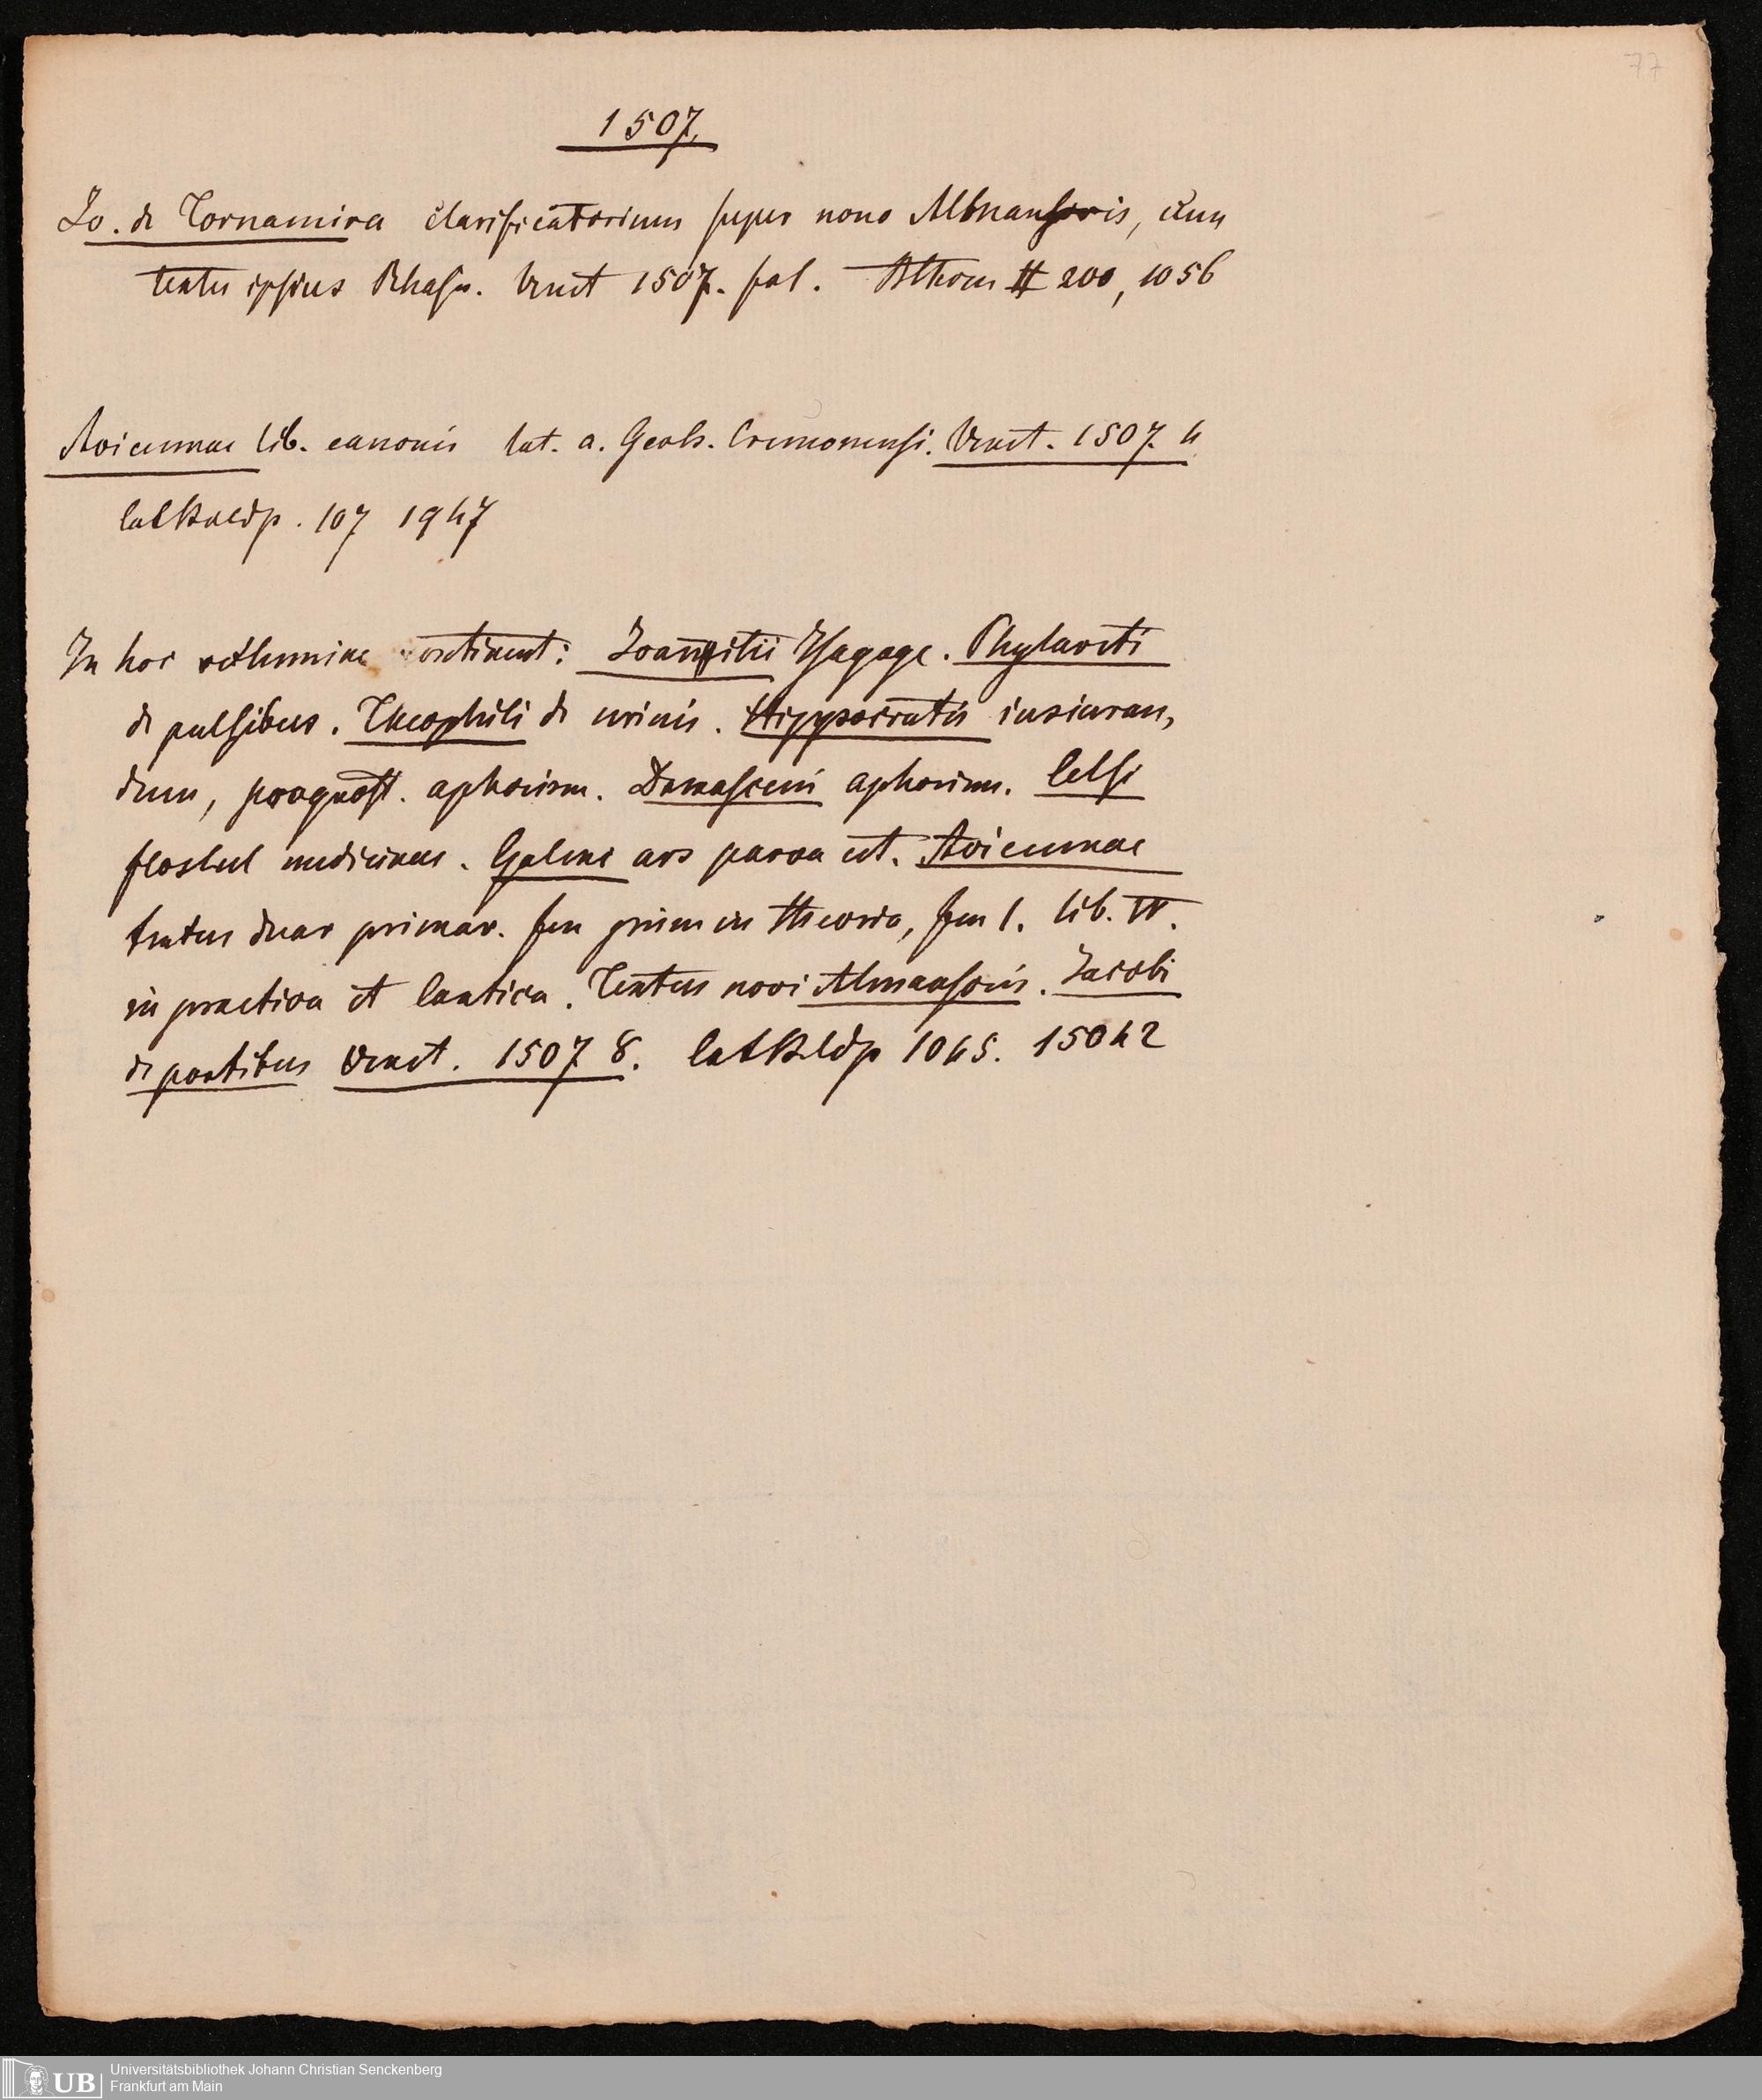 77
1507.
Jo. de Tornamira clarificatorium super nono Almansoris, cum
textu ipsius Rhasis. Venet 1507. fol. II 200, 1056
Avicennae lib. canonis lat. a. Gerh. Cremonensi. Venet. 1507. 4
107 1947
In hoc volumine continent: Joannitii Isagoge. Phylareti
de pulsibus. Theophili de urinis. Hippocratis iusiuran,
dum, prognost. aphorism. Damasceni aphorism. Celsi
floscul medicinae. Galeni ars parva et. Avicennae
textus duar primar. fen primi in theoria, fen 1. lib. IV.
in practica et Cantica. Textus noni Almansoris. Jacobi
de partibus Venet. 1507 8. 1045. 15042
UB Universitätsbibliothek Johann Christian Senckenberg
Frankfurt am Main